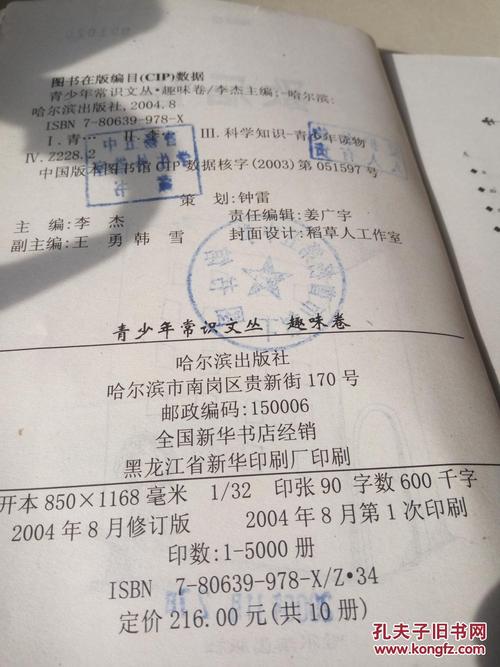 图书在版编目(CIP)数据
青少年常识文丛·趣味卷/李杰主编;-哈尔滨:
哈尔滨出版社,2004.8
ISBN 7-80639-978-X
Ⅰ.青… Ⅱ.李… Ⅲ.科学知识-青少年读物
Ⅳ.Z228.2
中国版本图书馆CIP数据核字(2003)第051597号
策 划:钟雷
主 编:李 杰 责任编辑:姜广宇
副主编:王 勇 韩 雪 封面设计:稻草人工作室
青少年常识文丛 趣味卷
哈尔滨出版社
哈尔滨市南岗区贵新街170号
邮政编码:150006
全国新华书店经销
黑龙江省新华印刷厂印刷
开本 850×1168毫米 1/32 印张 90 字数 600千字
2004年8月修订版 2004年8月第1次印刷
印数:1-5000册
ISBN 7-80639-978-X/Z·34
定价 216.00元(共10册)
孔夫子旧书网
www.kongfz.com